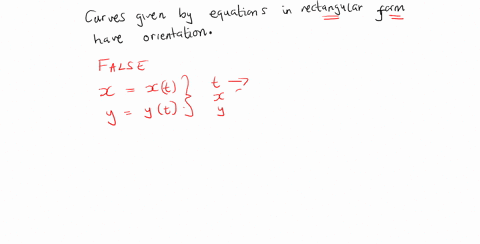 Curves given by equations in rectangular form
have orientation.
FALSE
x = x(t) } t →
x
y = y(t) } y